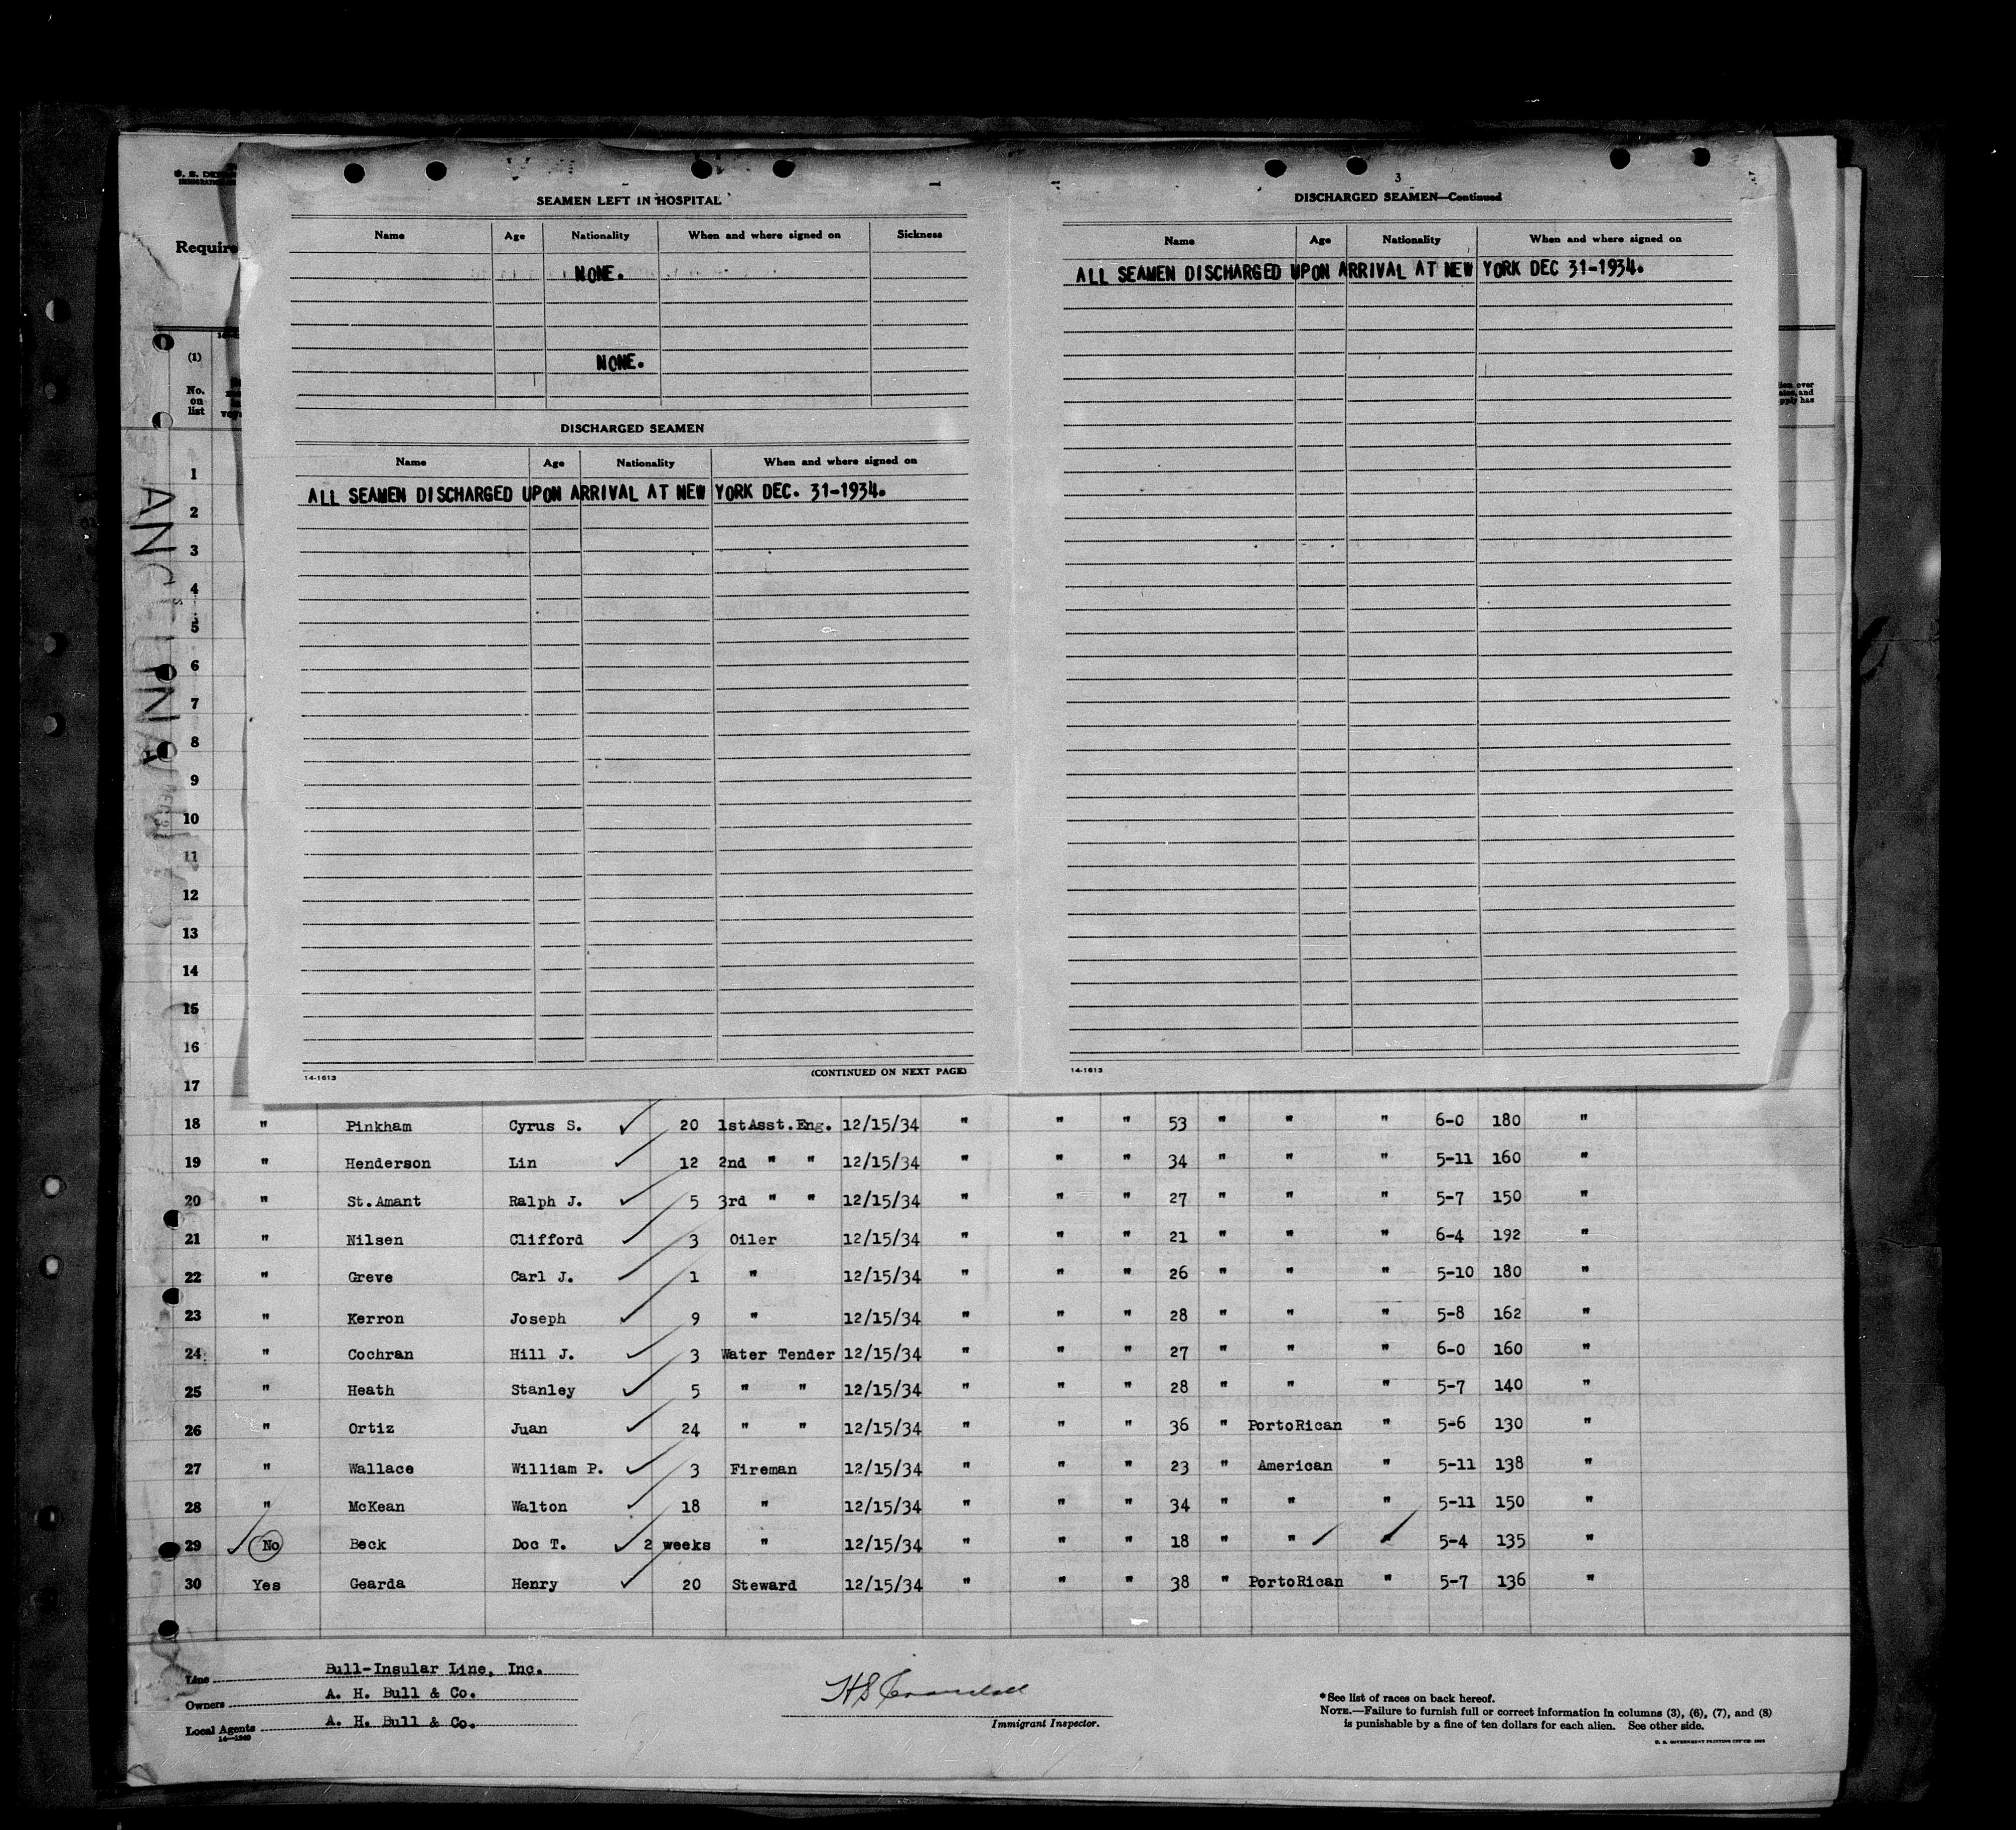 U. S. DE
Require
(1)
No.
on
list
3
SEAMEN LEFT IN HOSPITAL
Name Age Nationality When and where signed on Sickness
NONE.
NONE.
DISCHARGED SEAMEN
Name Age Nationality When and where signed on
ALL SEAMEN DISCHARGED UPON ARRIVAL AT NEW YORK DEC. 31-1934.
14-1613 (CONTINUED ON NEXT PAGE)
DISCHARGED SEAMEN—Continued
Name Age Nationality When and where signed on
ALL SEAMEN DISCHARGED UPON ARRIVAL AT NEW YORK DEC 31-1934.
14-1613
1
2
3
4
5
6
7
8
9
10
11
12
13
14
15
16
17
18 " Pinkham Cyrus S. ✓ 20 1stAsst.Eng. 12/15/34 " " " 53 " " " 6-0 180 "
19 " Henderson Lin ✓ 12 2nd " " 12/15/34 " " " 34 " " " 5-11 160 "
20 " St.Amant Ralph J. ✓ 5 3rd " " 12/15/34 " " " 27 " " " 5-7 150 "
21 " Nilsen Clifford ✓ 3 Oiler 12/15/34 " " " 21 " " " 6-4 192 "
22 " Greve Carl J. ✓ 1 " 12/15/34 " " " 26 " " " 5-10 180 "
23 " Kerron Joseph ✓ 9 " 12/15/34 " " " 28 " " " 5-8 162 "
24 " Cochran Hill J. ✓ 3 Water Tender 12/15/34 " " " 27 " " " 6-0 160 "
25 " Heath Stanley ✓ 5 " " 12/15/34 " " " 28 " " " 5-7 140 "
26 " Ortiz Juan ✓ 24 " " 12/15/34 " " " 36 " PortoRican " 5-6 130 "
27 " Wallace William P. ✓ 3 Fireman 12/15/34 " " " 23 " American " 5-11 138 "
28 " McKean Walton ✓ 18 " 12/15/34 " " " 34 " " " 5-11 150 "
29 ✓ No Beck Doc T. ✓ 2 weeks " 12/15/34 " " " 18 " " " 5-4 135 "
30 Yes Gearda Henry ✓ 20 Steward 12/15/34 " " " 38 " PortoRican " 5-7 136 "
Line Bull-Insular Line, Inc.
Owners A. H. Bull & Co.
Local Agents A. H. Bull & Co.
Immigrant Inspector.
*See list of races on back hereof.
NOTE.—Failure to furnish full or correct information in columns (3), (6), (7), and (8)
is punishable by a fine of ten dollars for each alien. See other side.